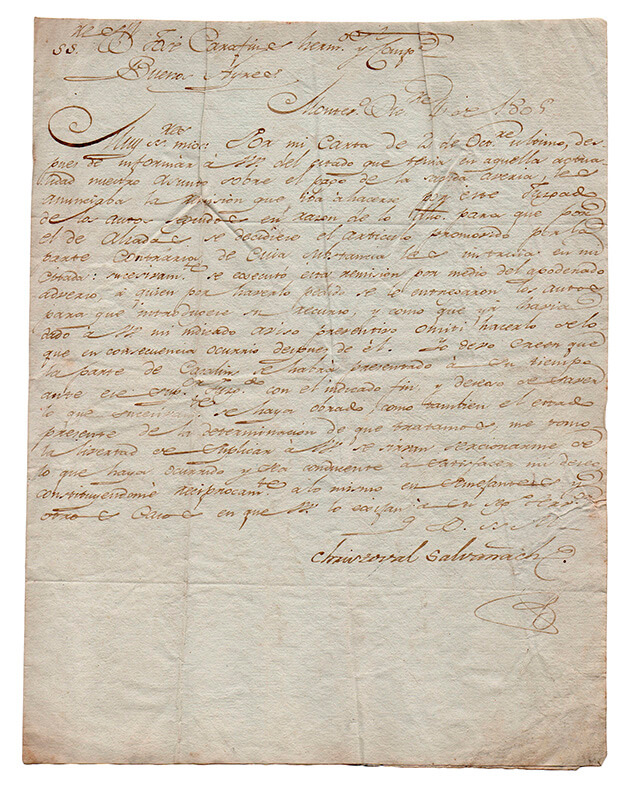 Buenos Ayres
Muy ss. mios: Por mi carta de 2 de Oct.re ultimo, des
pues de informar à Vm. del estado que tenia en aquella actua
lidad nuestro asunto sobre el pago de la averia, les
anunciaba la remision que iba a hacerse por este
de los autos en razon de lo para que por
el de Alzadas se decidiese el articulo promovido p.r la
parte contraria, de cuia substancia les instruia en mi
citada: sucesivam.te se executó esta remision por medio del apoderado
adverso, à quien por haverlo se le entregaron los autos
para que introduciese su recurso, y como que yá havia
dado à Vm. mi indicado aviso preventivo omití hacerlo de lo
que en consecuencia ocurrio despues de él. Yo devo creer que
la parte de se habrá presentado à su tiempo
ante ese Sup.or con el indicado fin, y deseoso de saver
lo que sucesivam.te se haya obrado, como tambien el estado
presente de la determinacion de que tratamos, me tomo
la libertad de suplicar à Vm. se sirvan de
lo que haya ocurrido y sea conducente à satisfacer mi deseo
constituyendome reciprocam.te a lo mismo en
otros casos en que Vm. lo
Christoval Salvañach